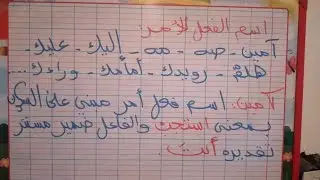 اسم الفعل الأمر
آمين - صه - مه - إليك - عليك -
هلمّ - رويدك - أمامك - وراءك ...
آمين: اسم فعل أمر مبني على الفتح
بمعنى استجب والفاعل ضمير مستتر
تقديره أنت.